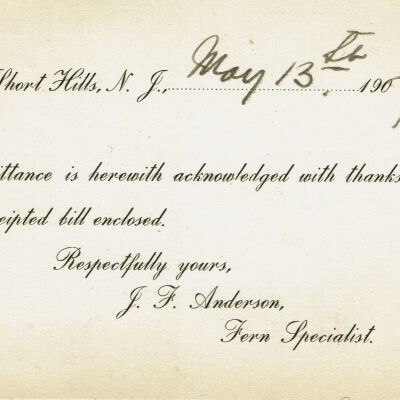 Short Hills, N. J., May 13th 190
ittance is herewith acknowledged with thanks
eipted bill enclosed.
Respectfully yours,
J. F. Anderson,
Fern Specialist.